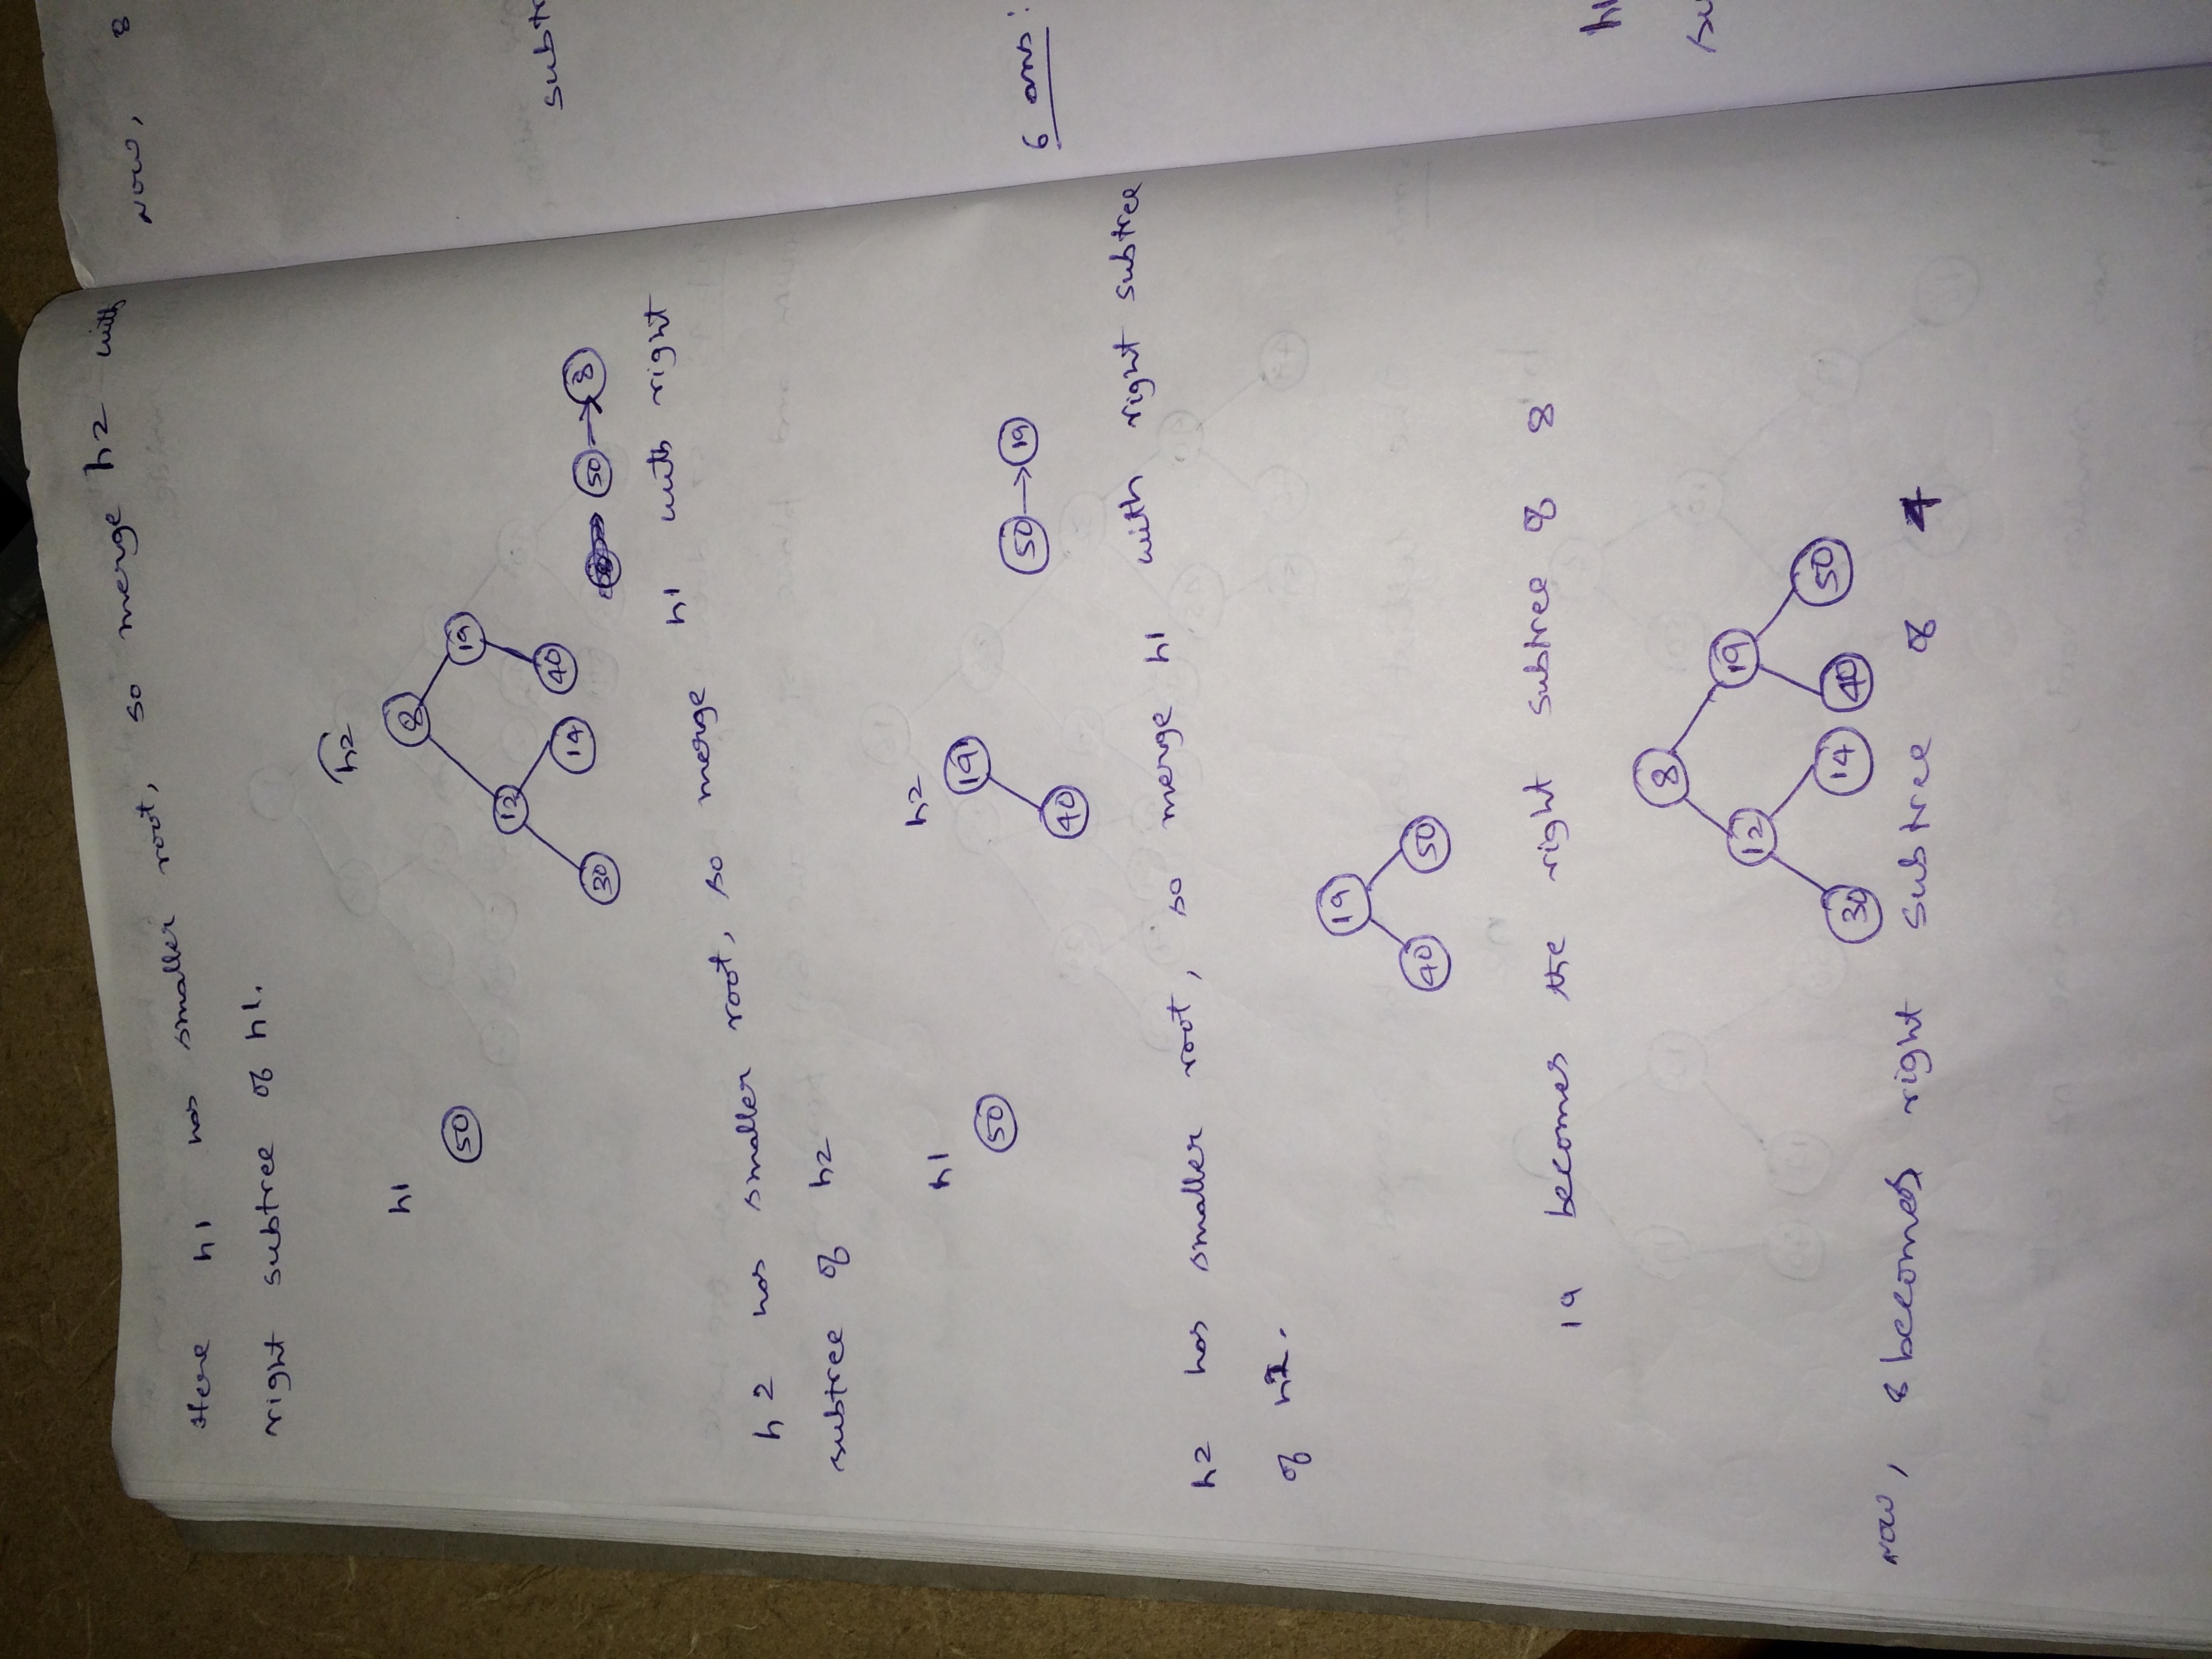 Here h1 has smaller root, so merge h2 with
right subtree of h1.
h1
50
h2
8
19
12
40
14
30
50 → 8
h2 has smaller root, so merge h1 with right
subtree of h2
h1
50
h2
19
40
50 → 19
h2 has smaller root, so merge h1 with right subtree
of h2.
19
40 50
19 becomes the right subtree of 8
8
12 19
30 14 40 50
Now, 8 becomes right subtree of 4
Now, 8
subtr
6 ans:
h1
su